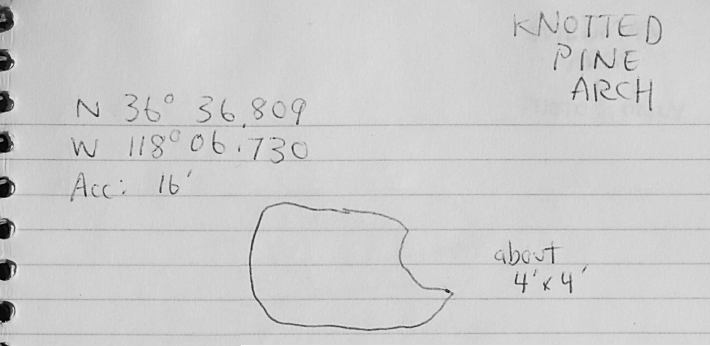 KNOTTED
PINE
ARCH
N 36° 36.809
W 118° 06.730
Acc: 16'
about
4'x4'